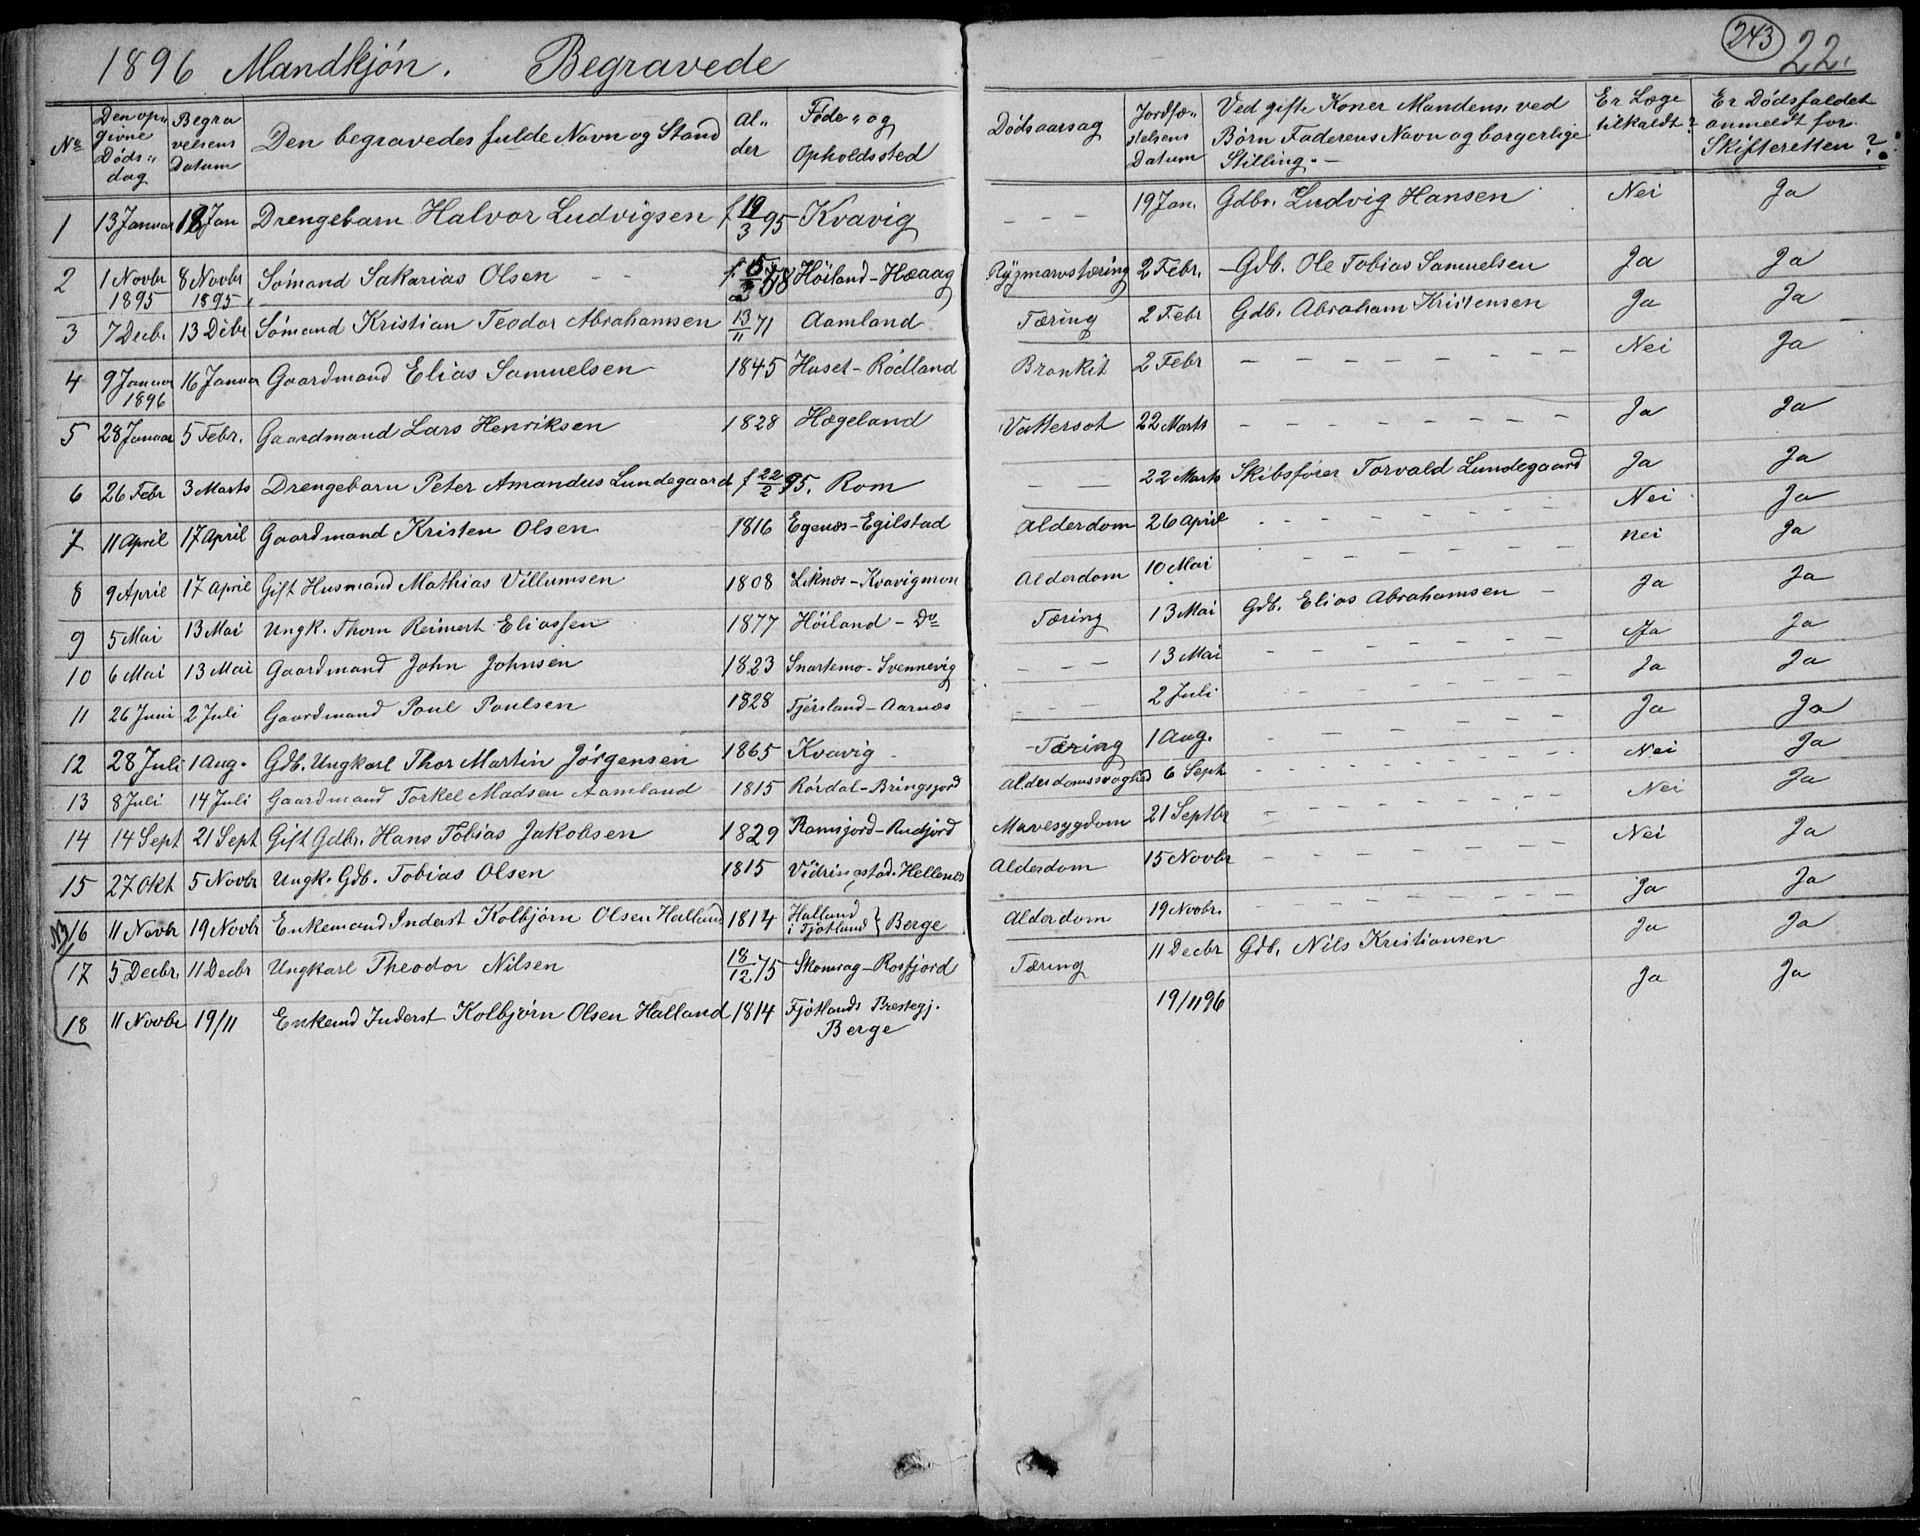 243
22.
1896 Mandkjön. Begravede
No Den opgivne Dödsdag Begravelsens Datum Den begravedes fulde Navn og Stand Alder Föde- og Opholdssted Dödsaarsag Jordfæstelsens Datum Ved gifte Koner Mandens, ved Börn Faderens Navn og borgerlige Stilling.- Er Læge tilkaldt? Er Dödsfaldet anmeldt for Skifteretten?
1 13 Januar 18 Jan Drengebarn Halvor Ludvigsen f 19/3 95 Kvavig - - - 19 Jan. Gdbr. Ludvig Hansen Nei Ja
2 1 Novbr 1895 8 Novbr 1895 Sömand Sakarias Olsen - - Höiland-Hæaag Rygmarvstæring 2 Febr. - Gdb. Ole Tobias Samuelsen Ja Ja
3 7 Decbr 13 Debr Sömand Kristian Teodor Abrahamsen 13/11 71 Aamland Tæring 2 Febr Gdb. Abraham Kristensen Ja Ja
4 9 Januar 1896 16 Januar Gaardmand Elias Samuelsen 1845 Huset-Rödland Bronkit 2 Febr - - - - - - - Nei Ja
5 28 Januar 5 Febr. Gaardmand Lars Henriksen 1828 Hægeland Vattersot 22 Marts - - - - - - - Ja Ja
6 26 Febr 3 Marts Drengebarn Peter Amandus Lundegaard f 22/2 95. Rom - - 22 Marts Skibsförer Torvald Lundegaard Ja Ja
7 11 April 17 April Gaardmand Kristen Olsen 1816 Egenæs-Egilstad Alderdom 26 April - - - - - - - Nei Ja
8 9 April 17 April Gift Husmand Mathias Villumsen 1808 Liknæs-Kvavigmon Alderdom 10 Mai - - - - - - - nei Ja
9 5 Mai 13 Mai Ungk. Thom Reimert Eliassen 1877 Höiland - Do Tæring 13 Mai Gdb. Elias Abrahamsen - Ja Ja
10 6 Mai 13 Mai Gaardmand John Johnsen 1823 Snartemo-Svennevig - - - 13 Mai - - - - - - - Ja Ja
11 26 Juni 2 Juli Gaardmand Poul Poulsen 1828 Fjersland-Aarnæs - - - 2 Juli - - - - - - - Ja Ja
12 28 Juli 1 Aug. Gdb. Ungkarl Thor Martin Jörgensen 1865 Kvavig - Tæring 1 Aug. - - - - - - - Ja Ja
13 8 Juli 14 Juli Gaardmand Torkel Madsen Aamland 1815 Rördal-Bringsjord Alderdomssvaghed 6 Sept - - - - - - - Nei Ja
14 14 Sept 21 Sept Gift Gdbr. Hans Tobias Jakobsen 1829 Ramsjord-Rudjord Mavesygdom 21 Septbr - - - - - - - Nei Ja
15 27 Okt 5 Novbr Ungk. Gdb. Tobias Olsen 1815 Vidringstad-Hellenes Alderdom 15 Novbr - - - - - - - Nei Ja
16 11 Novbr 19 Novbr Enkemand Inderst Kolbjörn Olsen Halland 1814 Halland i Fjotland } Berge Alderdom 19 Novbr. Ja Ja
17 5 Decbr. 11 Decbr Ungkarl Theodor Nilsen 18/12 75 Skomrag-Rosfjord Tæring 11 Decbr Gdb. Nils Kristiansen Ja Ja
18 11 Novbr 19/11 Enkemd Inderst Kolbjörn Olsen Halland 1814 Fjötlands Prestegj. Berge 19/11 96 Ja Ja